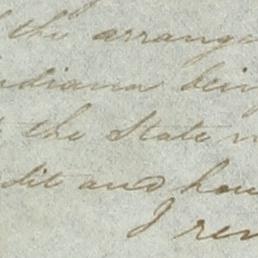 the arrange
ndiana bein
the State
dit and hon
I rem